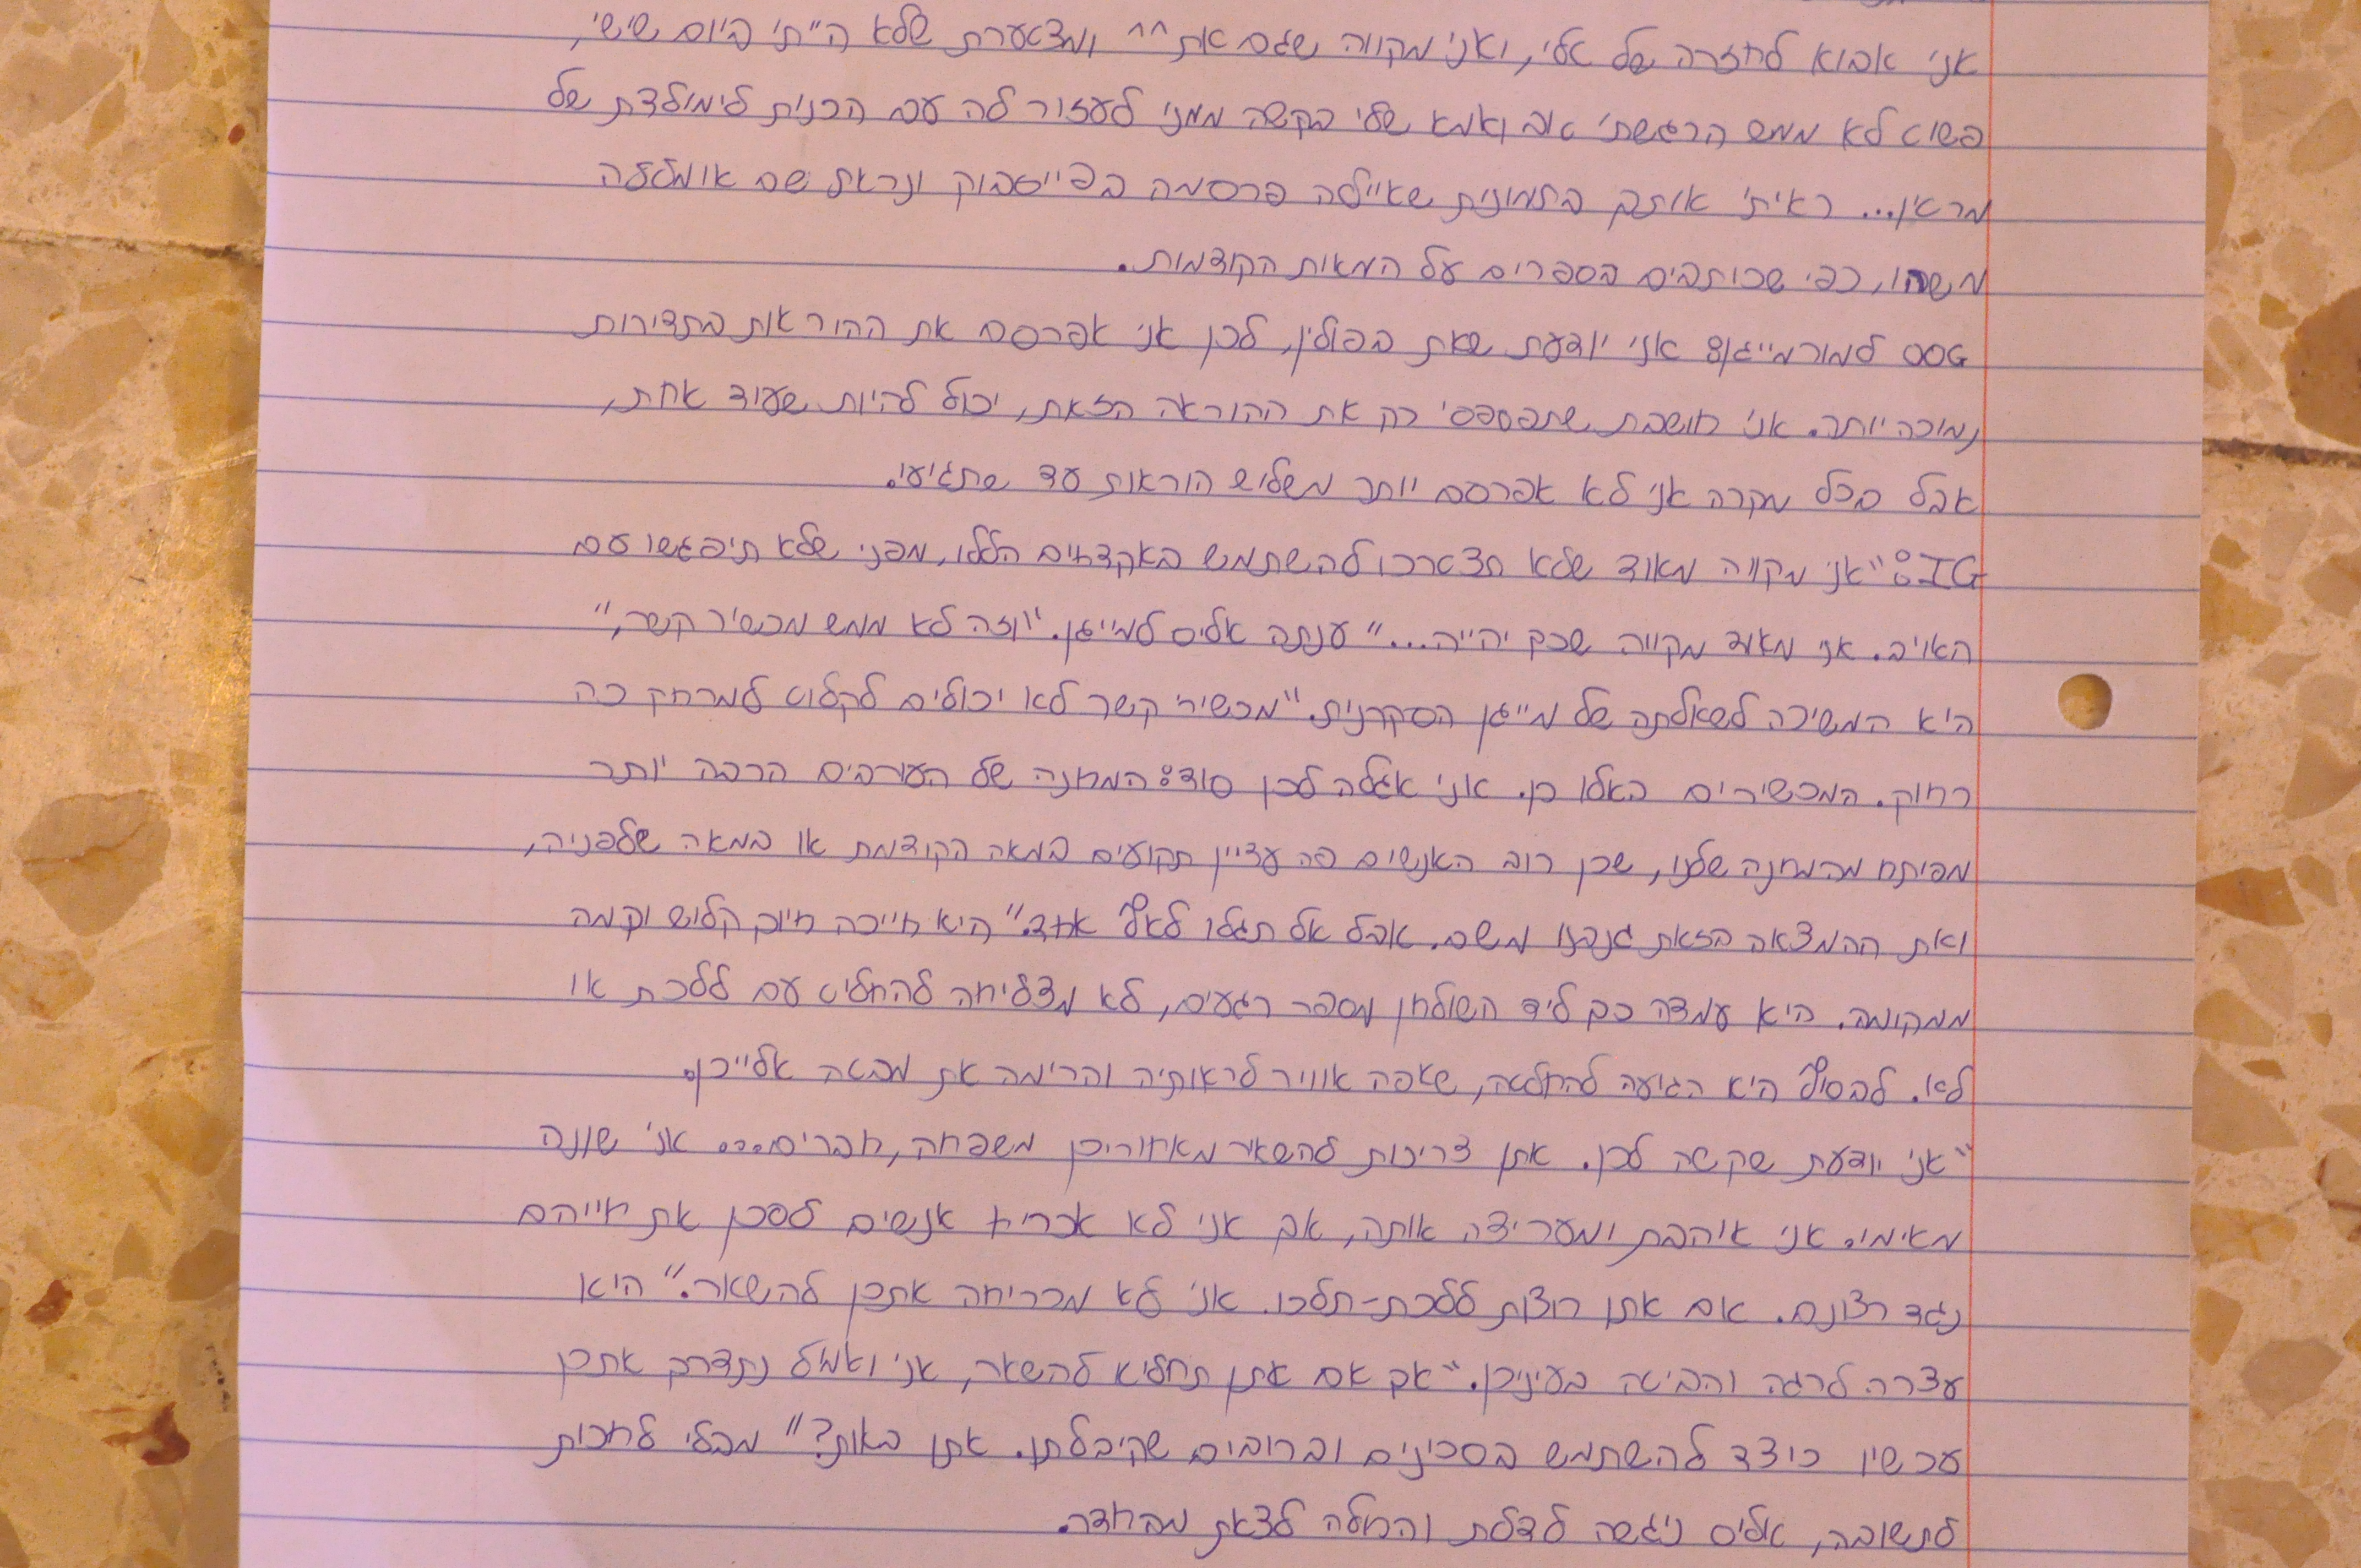 אני אבוא לחזרה של אלי, ואני מקווה שגם את ^^ ומצטערת שלא הייתי ביום שישי,
פשוט לא ממש הרגשתי טוב ואמא שלי בקשה ממני לעזור לה עם הכנות לימולדת של
מראין... ראיתי אותך בתמונות שאיילה פרסמה בפייסבוק ונראת שם אומללה
משהו, כפי שכותבים בספרים על המאות הקודמות.
OOG למורמייגן: אני יודעת שאת בפולין, לכן אני אפרסם את ההוראות בתדירות
נמוכה יותר. אני חושבת שתפספסי רק את ההוראה הזאת, יכול להיות שעוד אחת,
אבל בכל מקרה אני לא אפרסם יותר משלוש הוראות עד שתגיעי.
IG: "אני מקווה מאוד שלא תצטרכו להשתמש באקדחים הללו, מפני שלא תיפגשו עם
האויב. אני מאוד מקווה שכך יהייה..." ענתה אליס למייגן. "וזה לא ממש מכשיר קשר,"
היא המשיכה לשאלתה של מייגן הסקרנית. "מכשירי קשר לא יכולים לקלוט למרחק כה
רחוק. המכשירים האלו כן. אני אגלה לכן סוד: המחנה של העורבים הרבה יותר
מפיתח מהמחנה שלנו, שכן רוב האנשים פה עדיין תקועים במאה הקודמת או במאה שלפניה,
ואת ההמצאה הזאת גנבנו משם. אבל אל תגלו לאף אחד." היא חייכה חיוך קלוש וקמה
ממקומה. היא עמדה כך ליד השולחן מספר רגעים, לא מצליחה להחליט עם ללכת או
לא. לבסוף היא הגיעה להחלטה, שאפה אוויר לראותיה והרימה את מבטה אלייכן.
"אני יודעת שקשה לכן. אתן צריכות להשאיר מאחוריכן משפחה, חברים... אני שונה
מאימי. אני אוהבת ומעריצה אותה, אך אני לא אכריח אנשים לסכן את חייהם
נגד רצונם. אם אתן רוצות ללכת-תלכו. אני לא מכריחה אתכן להשאר." היא
עצרה לרגה והביטה בעיניכן. "אך אם אתן תחליא להשאר, אני ואמיל נתדרך אתכן
עכשיו כיצד להשתמש בסכינים וברובים שקיבלתן. אתן באות?" מבלי לחכות
לתשובה, אליס ניגשה לדלת והחלה לצאת מהחדר.